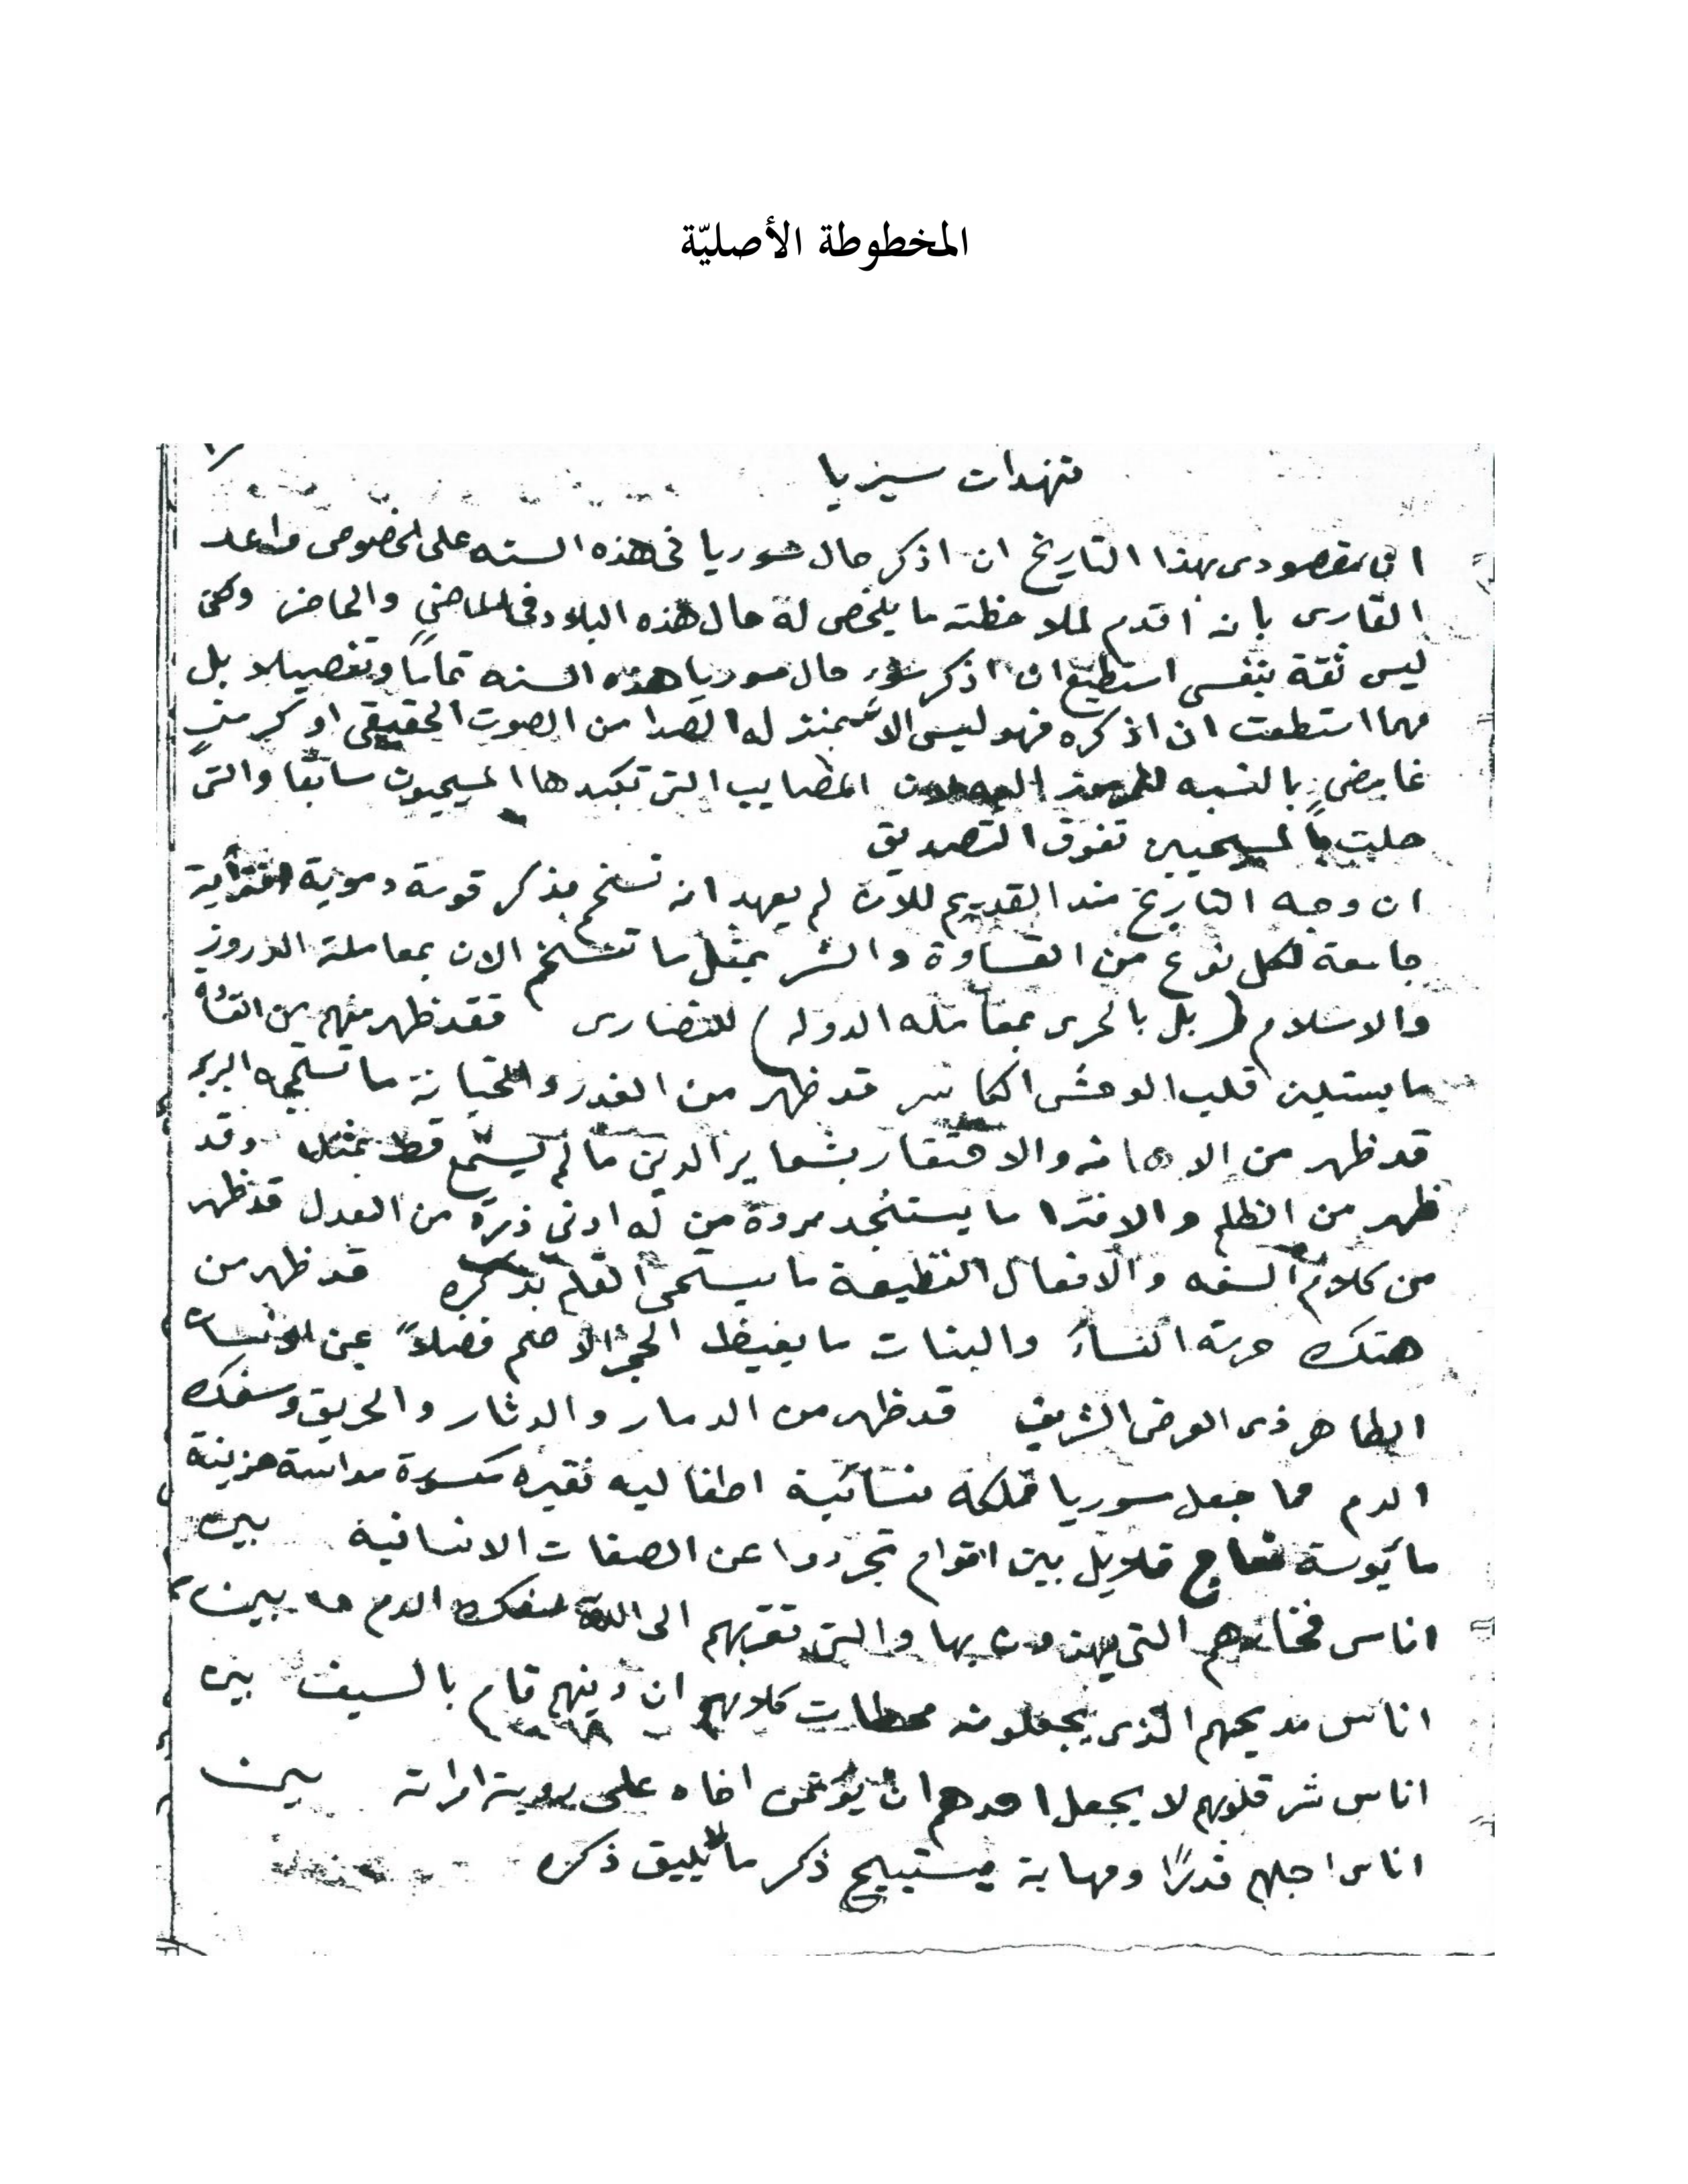 المخطوطة الأصليّة
تنهدات سيريا
انى بمقصودى بهذا التاريخ ان اذكر حال سوريا فى هذه السنه على الخصوص واعد
القارى بانه اقدم لملاحظته ما يلخص له حال هذه البلاد فى الماضى والحاضر
ليس ثقة بنفسى استطيع ان اذكر حال سوريا هذه السنه تماما وتفصيلا بل
مهما استطعت ان اذكره فهو ليس الا له الصدا من الصوت الحقيقى او كرمز
غامض بالنسبه المصايب التى تكبدها المسيحيون سابقا والتى
حلت بالمسيحيين تفوق التصديق
ان وجه التاريخ منذ القديم للان لم يعهد انه تسخم بذكر قومة دموية
جامعة لكل نوع من القساوة والشر بمثل ما تسخم الان بمعاملة الدروز
والاسلام (بل بالحرى بمعامله الدوله) للنصارى فقد ظهر منهم من
ما يستلين قلب الوحش الكاسر قد ظهر من الغدر والخيانة ما البربر
قد ظهر من الاهانه والاحتقار بشعاير الدين ما لم يسمع قط بمثله وقد
ظهر من الظلم والافترا ما يستنجد مروة من له ادنى ذرة من العدل قد ظهر
من كلام السفه والافعال الفظيعة ما يستحى القلم بذكره قد ظهر من
هتك حرمة النساء والبنات ما يغيظ الحجر الاصم فضلاً عن الانسان
الطاهر ذى العرض الشريف قد ظهر من الدمار والدثار والحريق وسفك
الدم مما جعل سوريا مملكة نسائية اطفاليه فقيره مكسورة مداسة حزينة
مأيوسة نعاج قلايل بين اقوام تجردوا عن الصفات الانسانية بين
اناس فخارهم التى بها والتى تقربهم الى الله سفك الدم بين
اناس مديحهم الذى يجعلونه محطات كلامهم ان دينهم قام بالسيف بين
اناس شر قلوبهم لا يجعل احدهم ان يؤتمن اخاه على روية امراته بين
اناس اجلهم قدرًا ومهابة يستبيح ذكر ما لا يليق ذكره